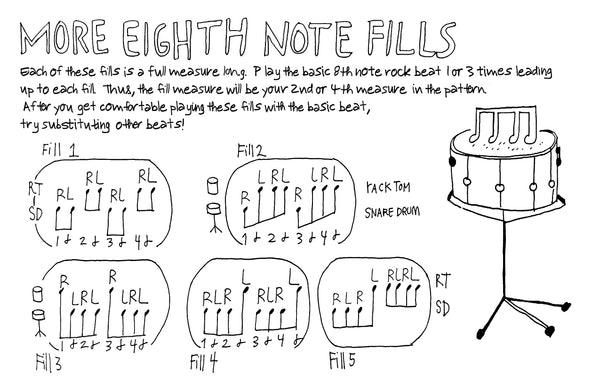 MORE EIGHTH NOTE FILLS
Each of these fills is a full measure long. Play the basic 8th note rock beat 1 or 3 times leading
up to each fill. Thus, the fill measure will be your 2nd or 4th measure in the pattern.
After you get comfortable playing these fills with the basic beat,
try substituting other beats!
Fill 1
RL RL RL RL
RT
SD
1 & 2 & 3 & 4 &
Fill 2
R LRL R LRL
1 & 2 & 3 & 4 &
RACK TOM
SNARE DRUM
R LRL R LRL
1 & 2 & 3 & 4 &
Fill 3
RLR L RLR L
1 & 2 & 3 & 4 &
Fill 4
RLR L RLRL
RT
SD
Fill 5